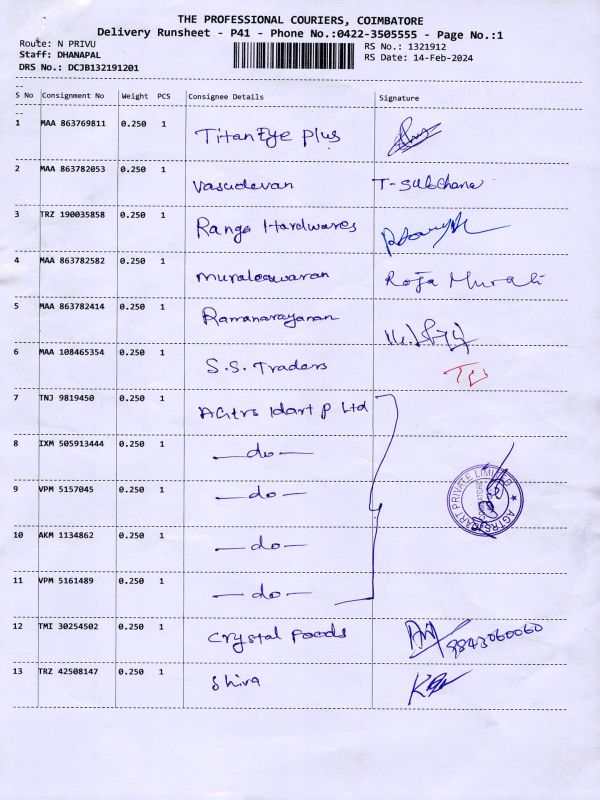 THE PROFESSIONAL COURIERS, COIMBATORE
Delivery Runsheet - P41 - Phone No.:0422-3505555 - Page No.:1
Route: N PRIVU RS No.: 1321912
Staff: DHANAPAL RS Date: 14-Feb-2024
DRS No.: DCJB132191201
S No Consignment No Weight PCS Consignee Details Signature
1 MAA 863769811 0.250 1 Titan Eye plus
2 MAA 863782053 0.250 1 Vasudevan T-Subchana
3 TRZ 190035858 0.250 1 Ranga Hardwares
4 MAA 863782582 0.250 1 Muraleswaran Roja Murali
5 MAA 863782414 0.250 1 Ramanarayanan
6 MAA 108465354 0.250 1 S.S. Traders
7 TNJ 9819450 0.250 1 AGtrs Idart P Ltd
8 IXM 505913444 0.250 1 —do—
9 VPM 5157045 0.250 1 —do—
10 AKM 1134862 0.250 1 —do—
11 VPM 5161489 0.250 1 —do—
12 TMI 30254502 0.250 1 Crystal Foods 9843060060
13 TRZ 42508147 0.250 1 Shiva